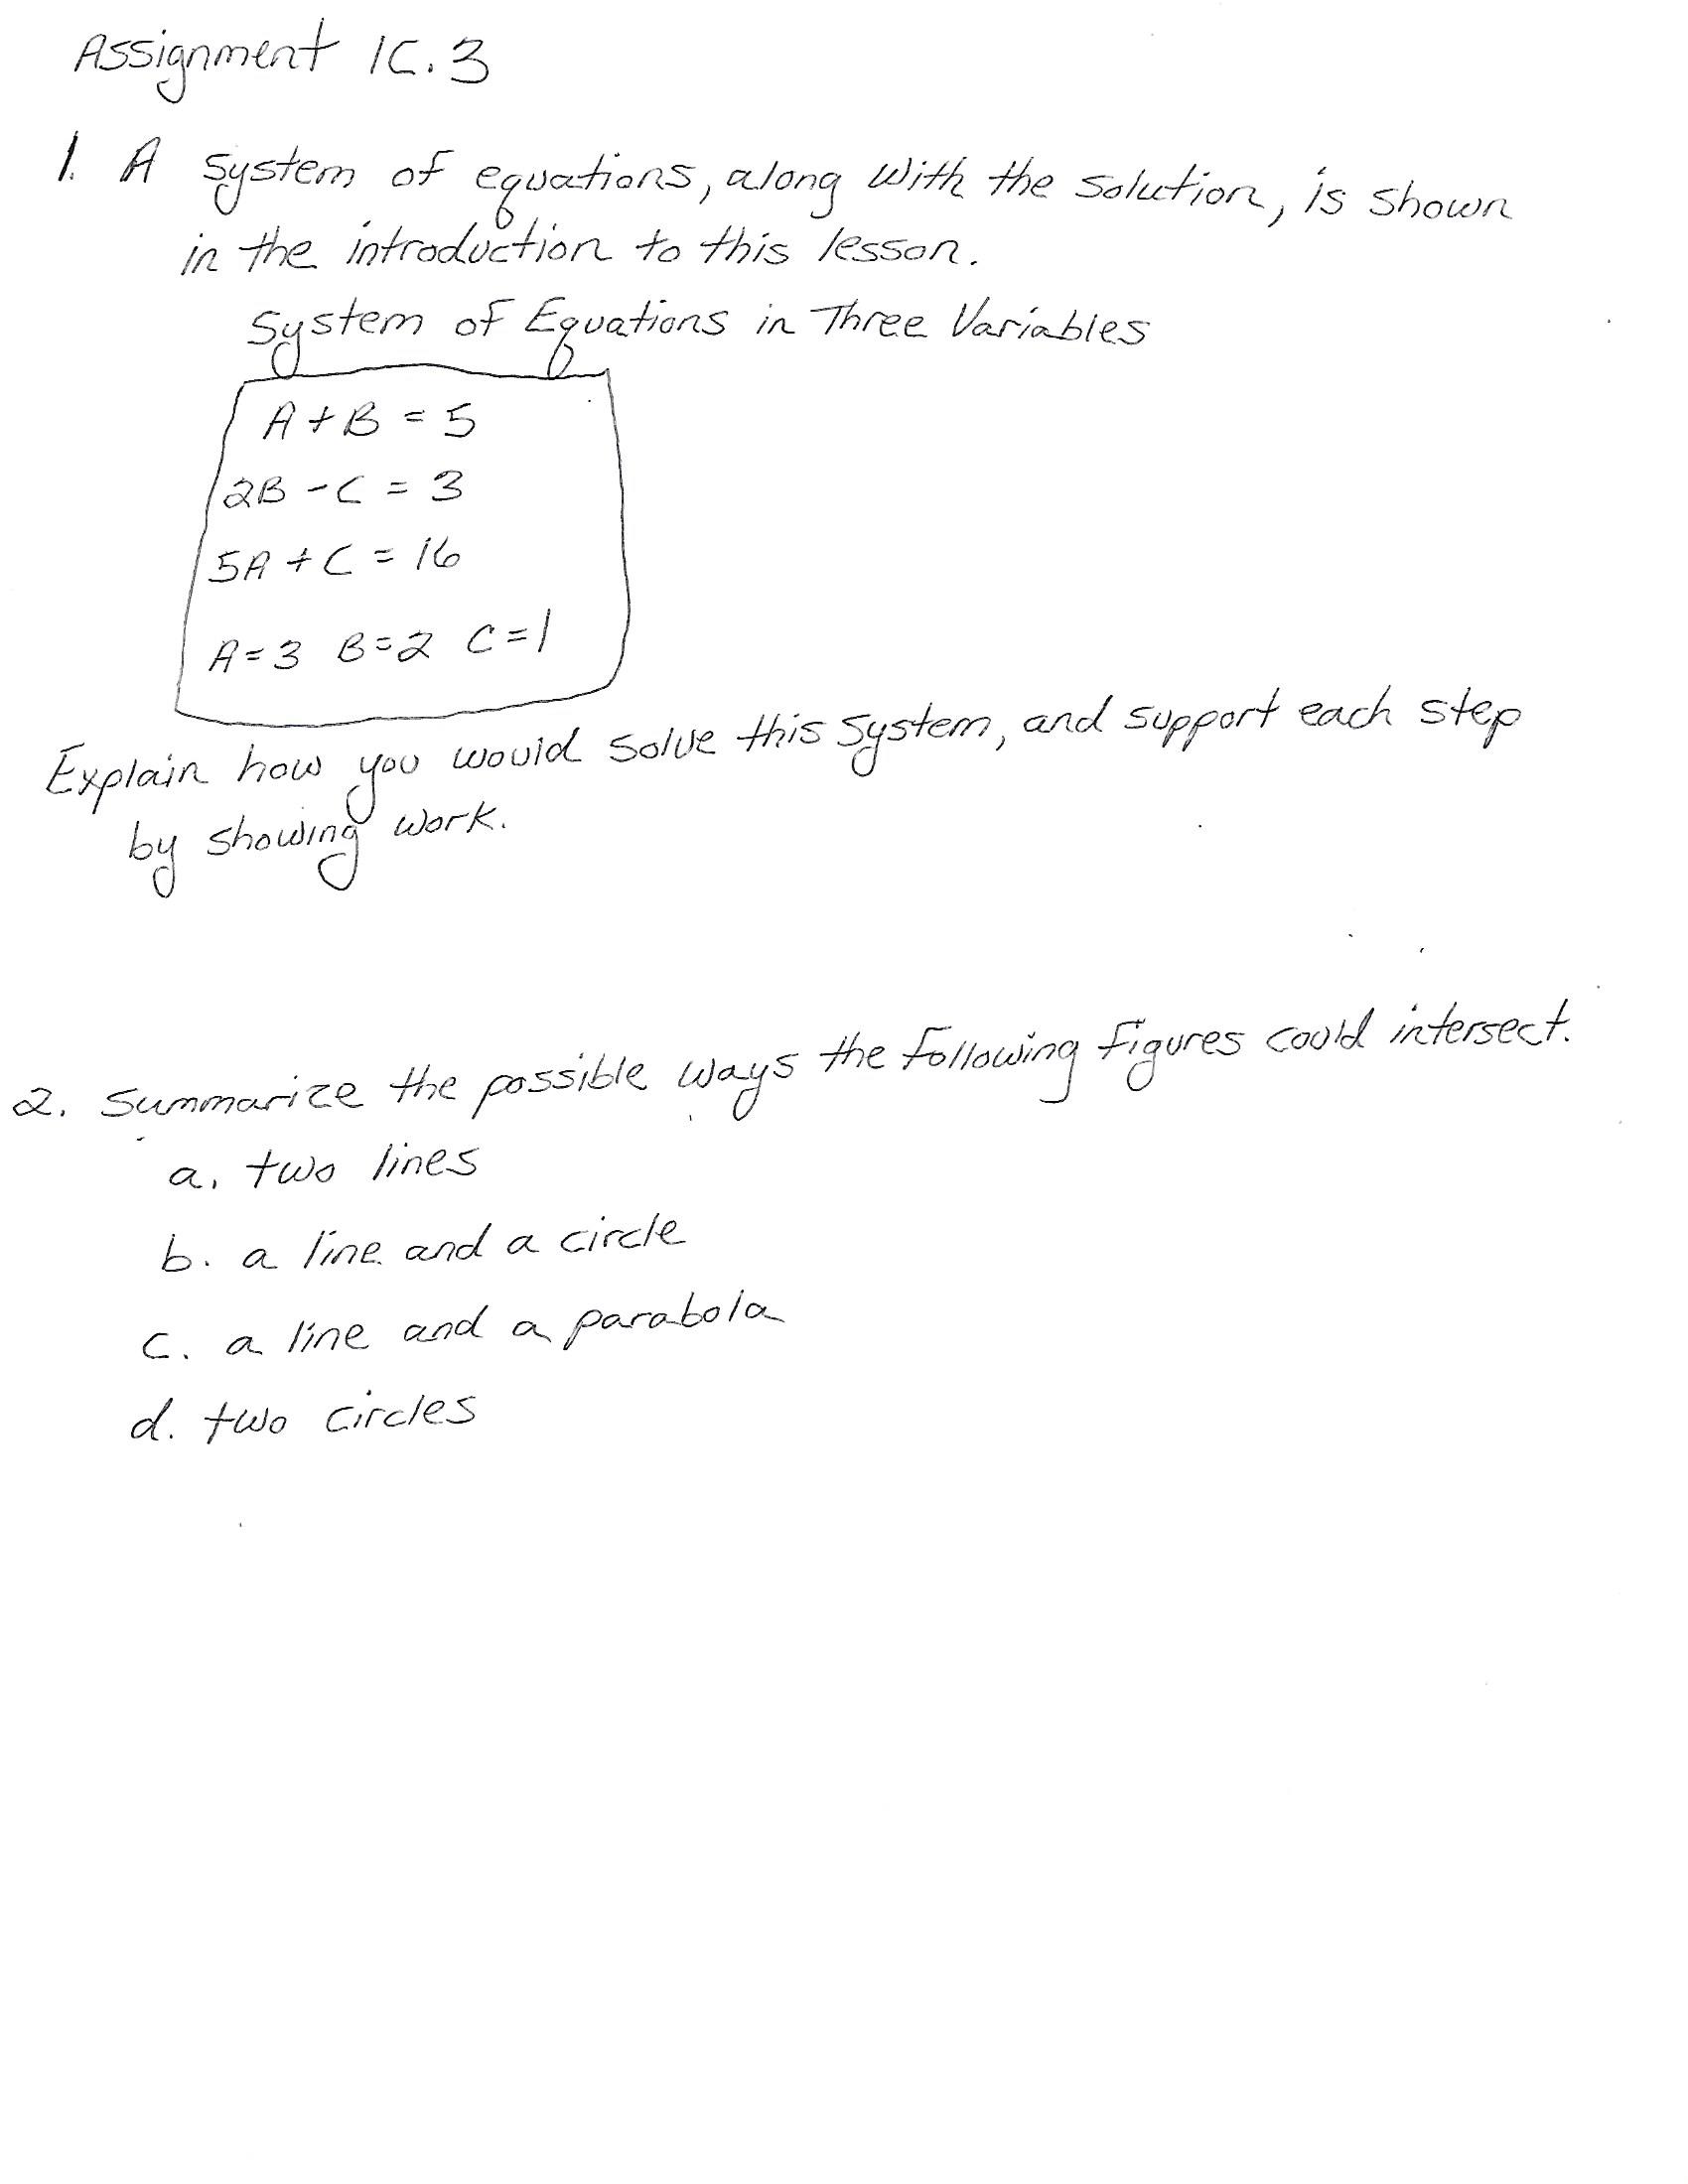 Assignment 1C.3
1. A system of equations, along with the solution, is shown
in the introduction to this lesson.
System of Equations in Three Variables
A + B = 5
2B - C = 3
5A + C = 16
A = 3 B = 2 C = 1
Explain how you would solve this system, and support each step
by showing work.
2. Summarize the possible ways the following figures could intersect.
a. two lines
b. a line and a circle
c. a line and a parabola
d. two circles